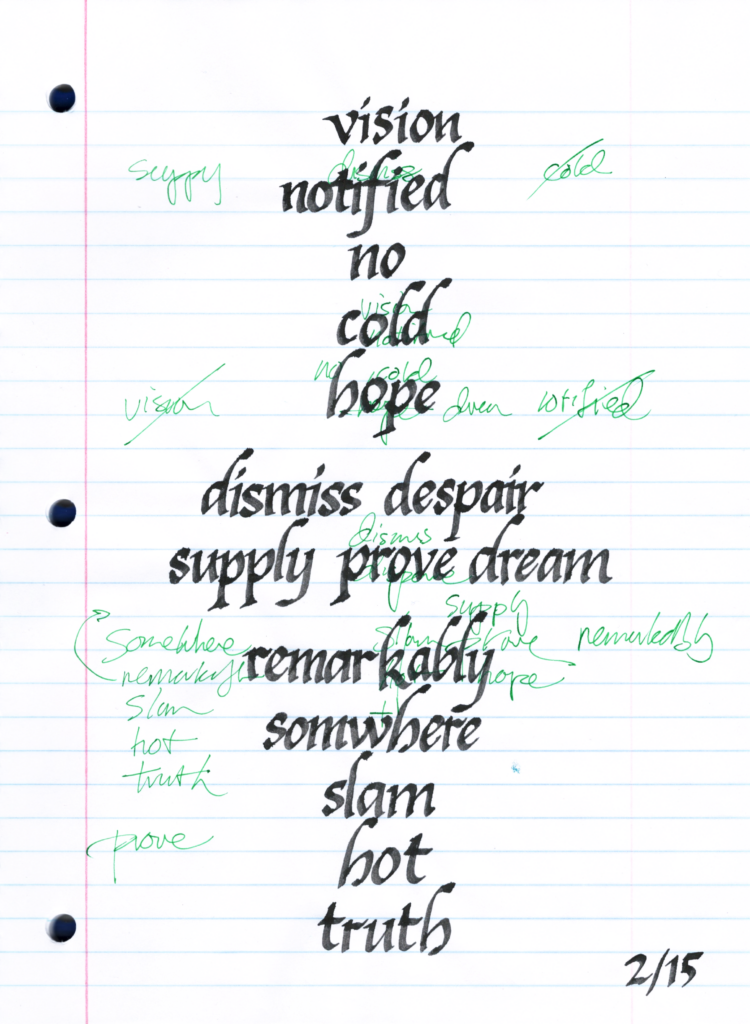 vision
supply dismiss cold
notified
no
cold
vision
notified
no cold
hope
vision hope notified
dismiss despair
dismiss
supply prove dream
supply
somewhere slam prove remarkably
remarkably
hope
slam
somwhere
hot
truth
slam
prove
hot
truth
2/15